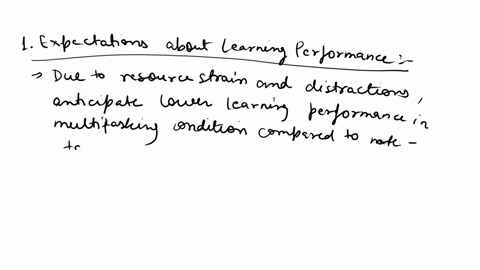 1. Expectations about Learning Performance :-
→ Due to resource strain and distractions,
anticipate lower learning performance in
multitasking condition compared to note -
to